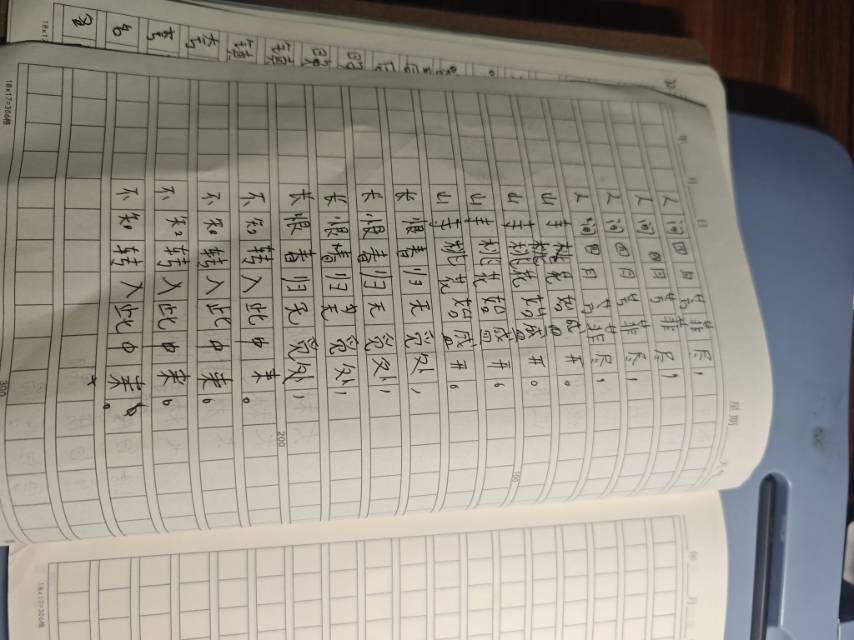 年 月 日 星期 天气
人间四月芳菲尽,
人间四月芳菲尽,
人间四月芳菲尽,
人间四月芳菲尽,
山寺桃花始盛开。
山寺桃花始盛开。
100
山寺桃花始盛开。
山寺桃花始盛开。
长恨春归无觅处,
长恨春归无觅处,
长恨春归无觅处,
长恨春归无觅处,
200
不知转入此中来。
不知转入此中来。
不知转入此中来。
不知转入此中来。
300
18×17=306格